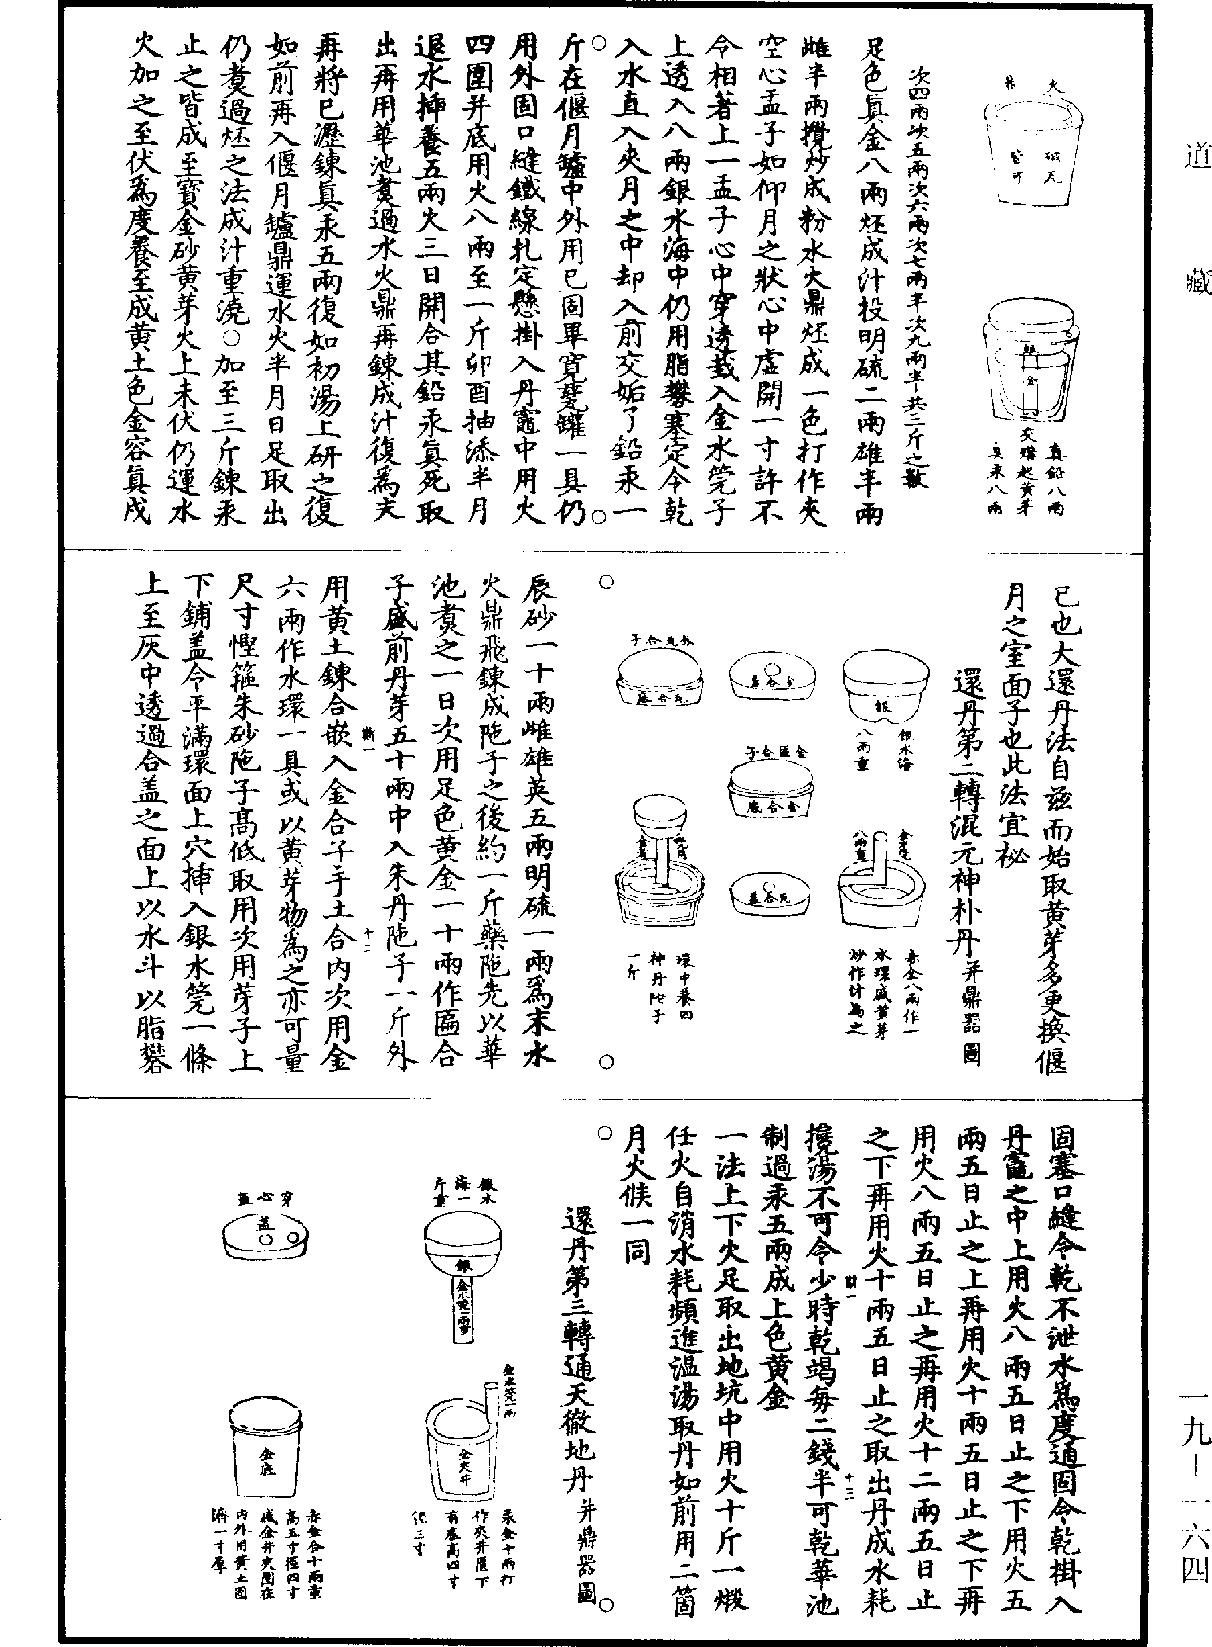 道藏
一九—一六四
火
井
真鉛八兩
交媾起黄芽
真汞八兩
次四兩次五兩次六兩次七兩半次九兩半共三斤之數
足色真金八兩烀成汁投明硫二兩雄半兩
雌半兩攪炒成粉水火鼎烀成一色打作夾
空心盂子如仰月之狀心中虚開一寸許不
令相著上一盂子心中穿透裁入金水筦子
上透入八兩銀水海中仍用脂礬塞定令乾
入水直入夾月之中却入前交姤了鉛汞一
斤在偃月鑪中外用已固畢寬甕罐一具仍
用外固口縫鐵線扎定懸掛入丹竈中用火
四圍并底用火八兩至一斤卯酉抽添半月
退水揷養五兩火三日開合其鉛汞真死取
出再用華池煑過水火鼎再鍊成汁復爲末
再將已瀝鍊真汞五兩復如初湯上研之復
如前再入偃月鑪鼎運水火半月日足取出
仍煑過烀之法成汁重澆○加至三斤鍊汞
止之皆成至寳金砂黄芽火上未伏仍運水
火加之至伏爲度養至成黄土色金容真戊
已也大還丹法自兹而始取黄芽多更換偃
月之室面子也此法宜祕
還丹第二轉混元神朴丹并鼎器圖
銀
銀水海
八兩重
赤金八兩作一
水環盛黄芽
炒作計爲之
金匱合子
環中養四
神丹陁子
一斤
辰砂一十兩雌雄英五兩明硫一兩爲末水
火鼎飛鍊成陁子之後約一斤藥陁先以華
池煑之一日次用足色黄金一十兩作匾合
子盛前丹芽五十兩中入朱丹陁子一斤外
用黄土鍊合嵌入金合子手土合内次用金
六兩作水環一具或以黄芽物爲之亦可量
尺寸慳箍朱砂陁子髙低取用次用芽子上
下鋪盖令平滿環面上穴揷入銀水筦一條
上至灰中透過合盖之面上以水斗以脂礬
固塞口縫令乾不泄水爲度通固令乾掛入
丹竈之中上用火八兩五日止之下用火五
兩五日止之上再用火十兩五日止之下再
用火八兩五日止之再用火十二兩五日止
之下再用火十兩五日止之取出丹成水耗
攙湯不可令少時乾竭每二錢半可乾華池
制過汞五兩成上色黄金
一法上下火足取出地坑中用火十斤一煅
任火自消水耗頻進温湯取丹如前用二箇
月火候一同
還丹第三轉通天徹地丹并鼎器圖
銀水
海一
斤重
銀
穿心盖
盖
金夾井
汞金十兩打
作夾井匱下
有座髙四寸
徑三寸
金底
赤金合十兩重
髙五寸徑四寸
盛金井夾圈在
内外用黄土固
濟一寸厚